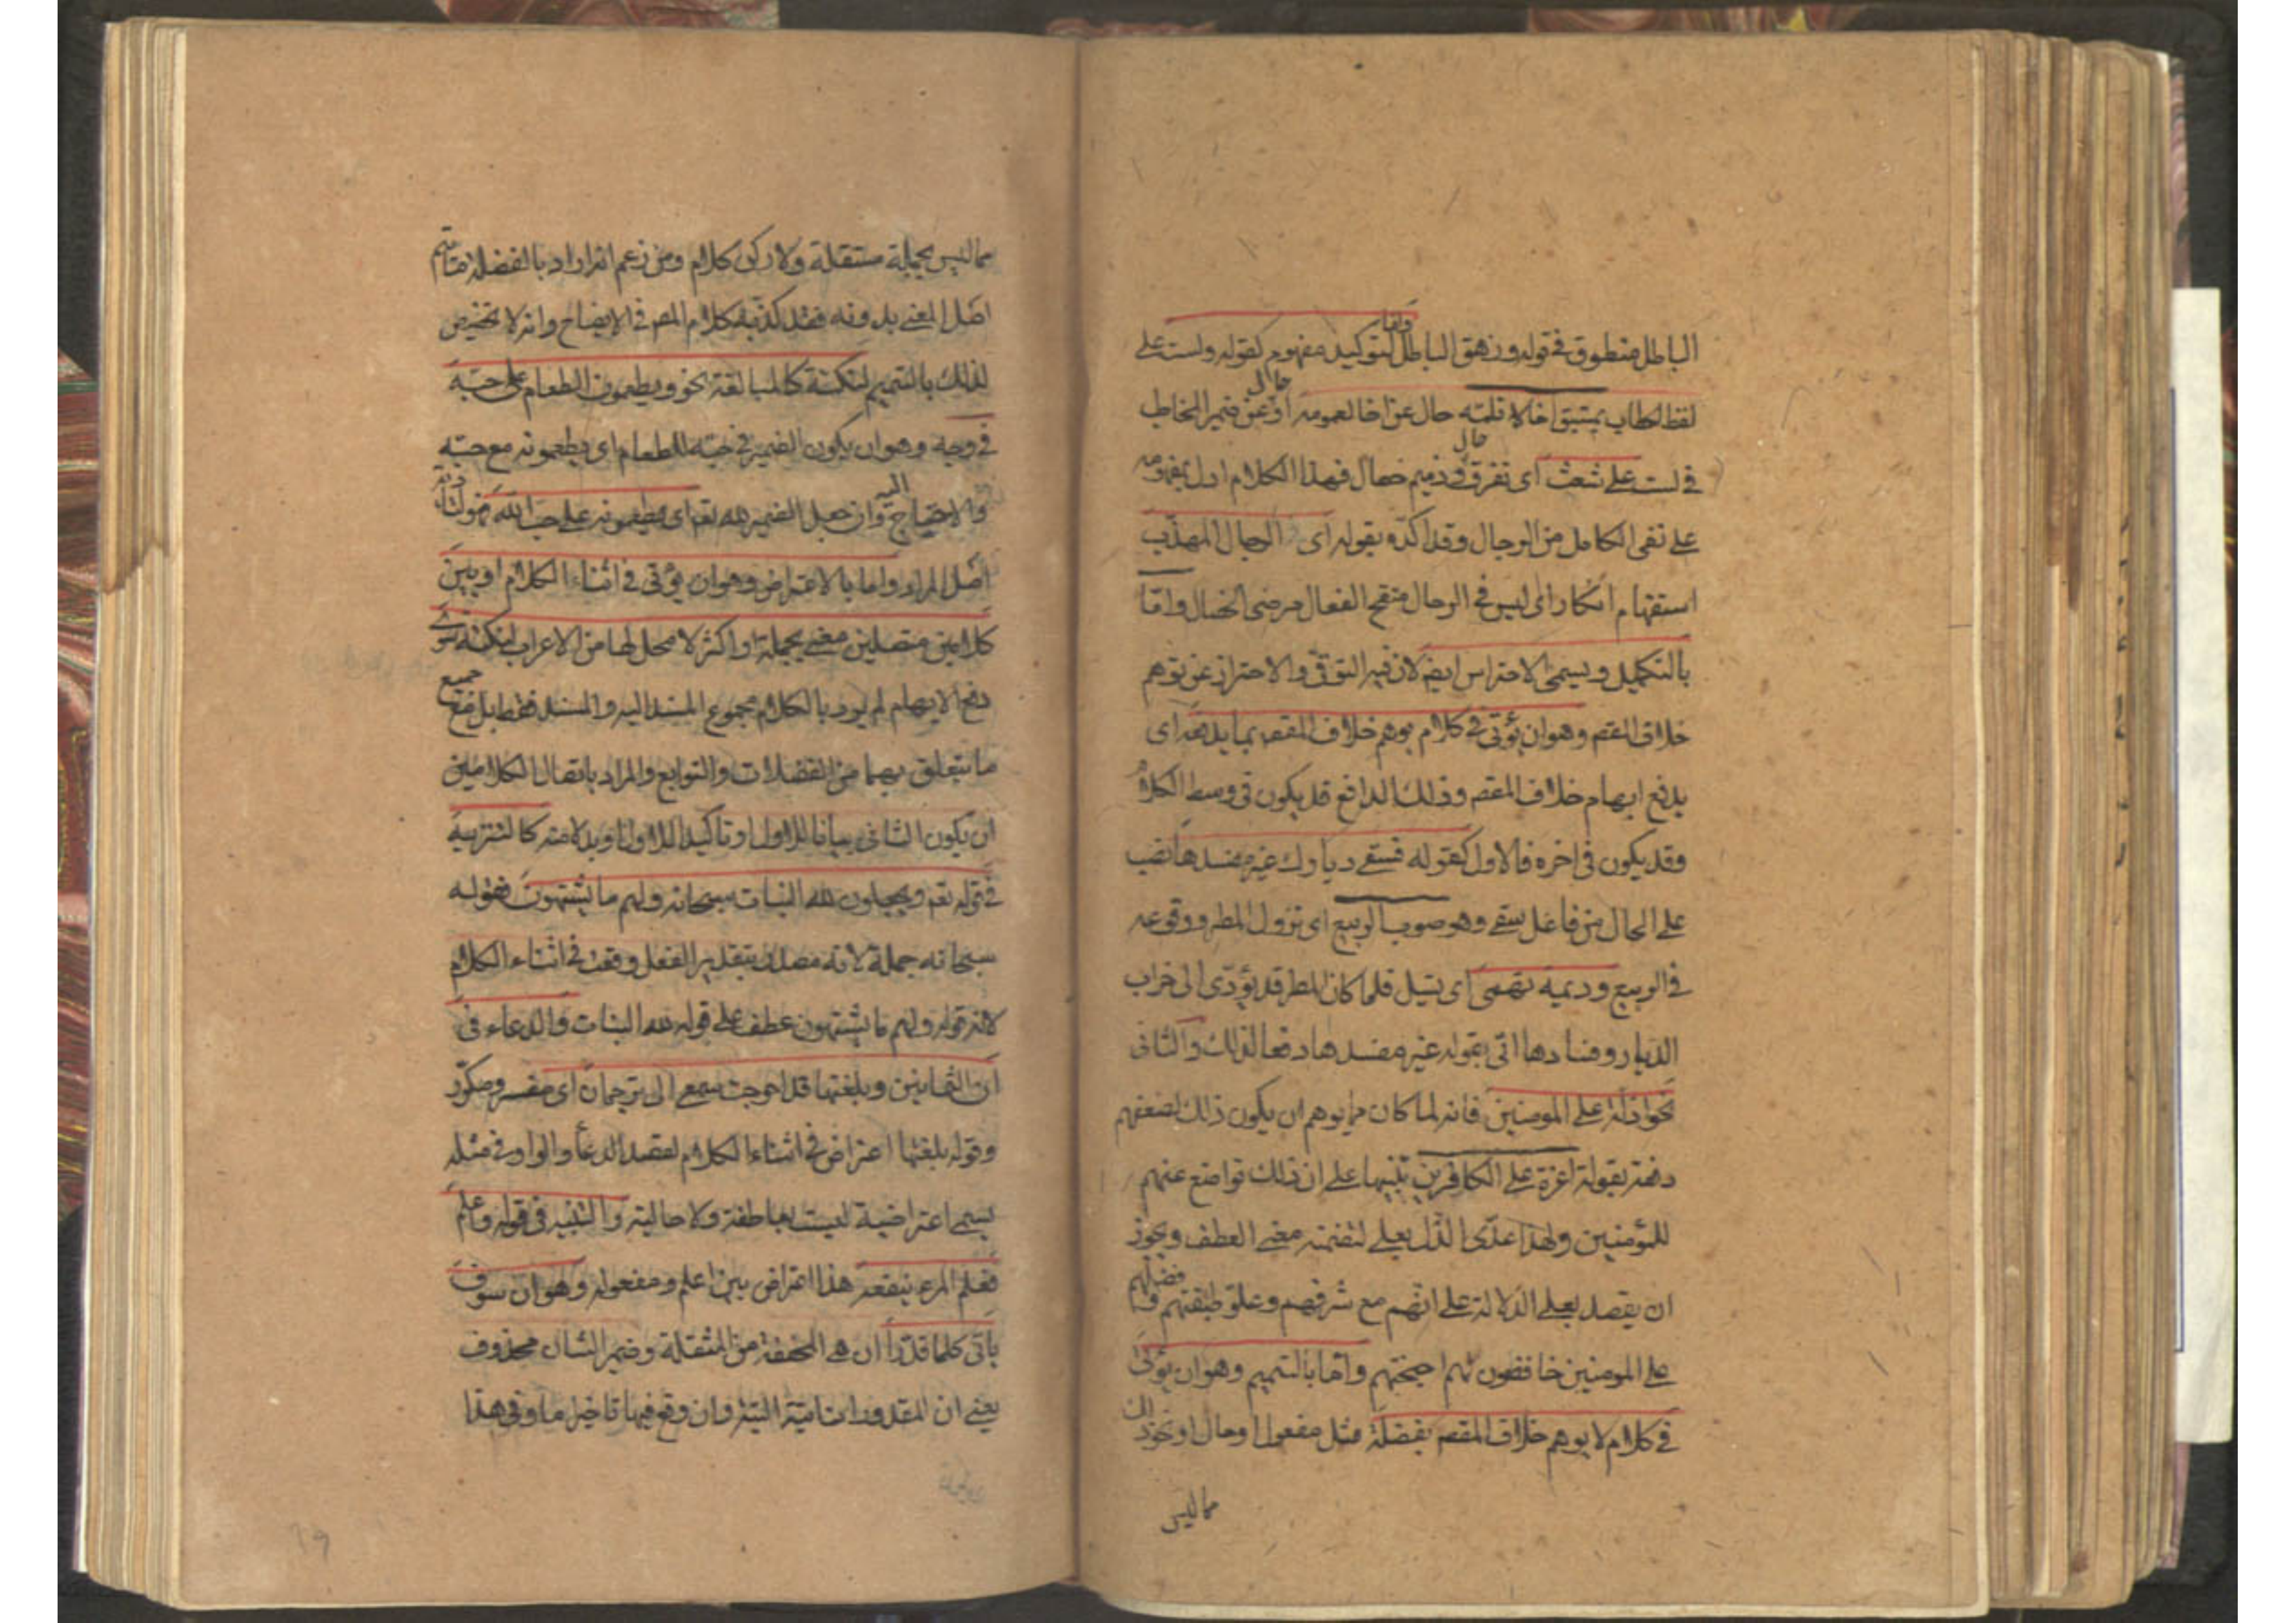 الباطل منطوق في قوله وزهق الباطل واما لتوكيد مفهوم كقوله ولست على
لفظ الخطاب بمستبق اخا لا تلمه حال عن اخا لعمومه او حال عن ضمير المخاطب
في لست على شعث اى تفرق حال وذميم خصال فهذا الكلام ادل بمفهومه
على نفى الكامل من الرجال وقد اكده بقوله اى الرجال المهذب
استفهام انكار اى ليس في الرجال منقح الفعال مرضى الخصال واما
بالتكميل ويسمى الاحتراس ايضا لان فيه التوقى والاحتراز عن توهم
خلاف المقصـ وهو ان يؤتى في كلام يوهم خلاف المقصـ بما يدفعه اى
يدفع ايهام خلاف المقصـ وذلك الدافع قد يكون في وسط الكلام
وقد يكون في اخره فالاول كقوله فسقى ديارك غير مفسدها نصب
على الحال من فاعل سقى وهو صوب الربيع اى نزول المطر ووقوعه
في الربيع وديمة تهمى اى تسيل فلما كان المطر قد يؤدى الى خراب
الديار وفسادها اتى بقوله غير مفسدها دفعا لذلك والثانى
نحو اذلة على المومنين فانه لما كان مما يوهم ان يكون ذلك لضعفهم
دفعه بقوله اعزة على الكافرين تنبيها على ان ذلك تواضع عنهم
للمؤمنين ولهذا عدى الذل بعلى لتضمنه معنى العطف ويجوز
ان يقصد بعلى الدلالة على انهم مع شرفهم وعلو طبقتهم وفضلهم
على المومنين خافضون لهم اجنحتهم واما بالتتميم وهو ان يؤتى
في كلام لا يوهم خلاف المقصـ بفضلة مثل مفعول او حال او نحو ذلك
مما ليس
مما ليس بجملة مستقلة ولا ركن كلام ومن زعم انه اراد بالفضلة ما يتم
اصل المعنى بدونه فقد كذبه كلام المصـ في الايضاح وانه لا تخصيص
لذلك بالتتميم لنكتة كالمبالغة نحو ويطعمون الطعام على حبه
في وجه وهو ان يكون الضمير في حبه للطعام اى ويطعمونه مع حبه
والاحتياج اليه وان جعل الضمير لله تعـ اى يطعمونه على حب الله فهو لتادية
اصل المراد واما بالاعتراض وهو ان يؤتى في اثناء الكلام او بين
كلامين متصلين معنى بجملة او اكثر لا محل لها من الاعراب لنكتة سوى
دفع الايهام لم يرد بالكلام مجموع المسند اليه والمسند فقط بل مع جميع
ما يتعلق بهما من الفضلات والتوابع والمراد باتصال الكلامين
ان يكون الثانى بيانا للاول او تاكيدا للاول او بدلا منه كالتنزيه
في قوله تعـ ويجعلون لله البنات سبحانه ولهم ما يشتهون فقوله
سبحانه جملة لانه مصدر بتقدير الفعل وقعت في اثناء الكلام
لان قوله ولهم ما يشتهون عطف على قوله لله البنات والدعاء في
ان الثمانين وبلغتها قد احوجت سمعى الى ترجمان اى مفسر ومكرر
وقوله بلغتها اعتراض في اثناء الكلام لقصد الدعاء والواو في مثله
يسمى اعتراضية ليست بعاطفة ولا حالية والتنبيه في قوله واعلم
فعلم المرء ينفعه هذا اعتراض بين اعلم ومفعوله وهو ان سوف
ياتى كلما قدرا ان هى المخففة من المثقلة وضمير الشان محذوف
يعنى ان المقدور ات البتة وان وقع فيها تاخير ما وفي هذا